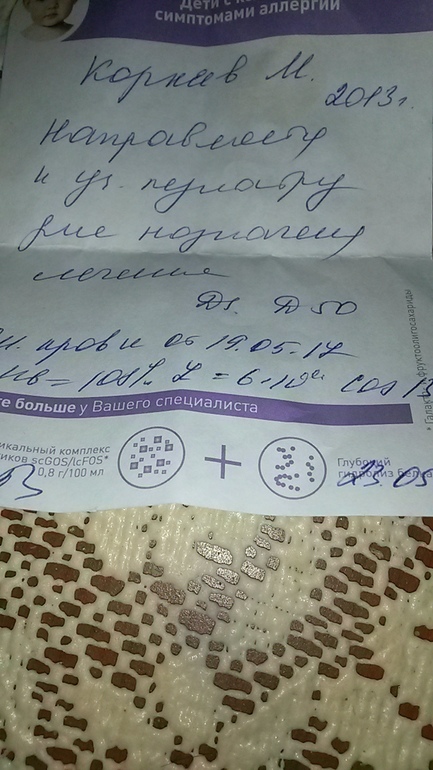 Дети с
симптомами аллергии
Корнев М.
2013г.
Направляется
к уч. педиатру
для назначения
лечения
Ds. D50
крови от 19.05.17
Hb =
е больше у Вашего специалиста
икальный комплекс
иков scGOS/lcFOS*
0,8 г/100 мл
+
Глубокий
гидролиз белка
* Галакто- фруктоолигосахариды